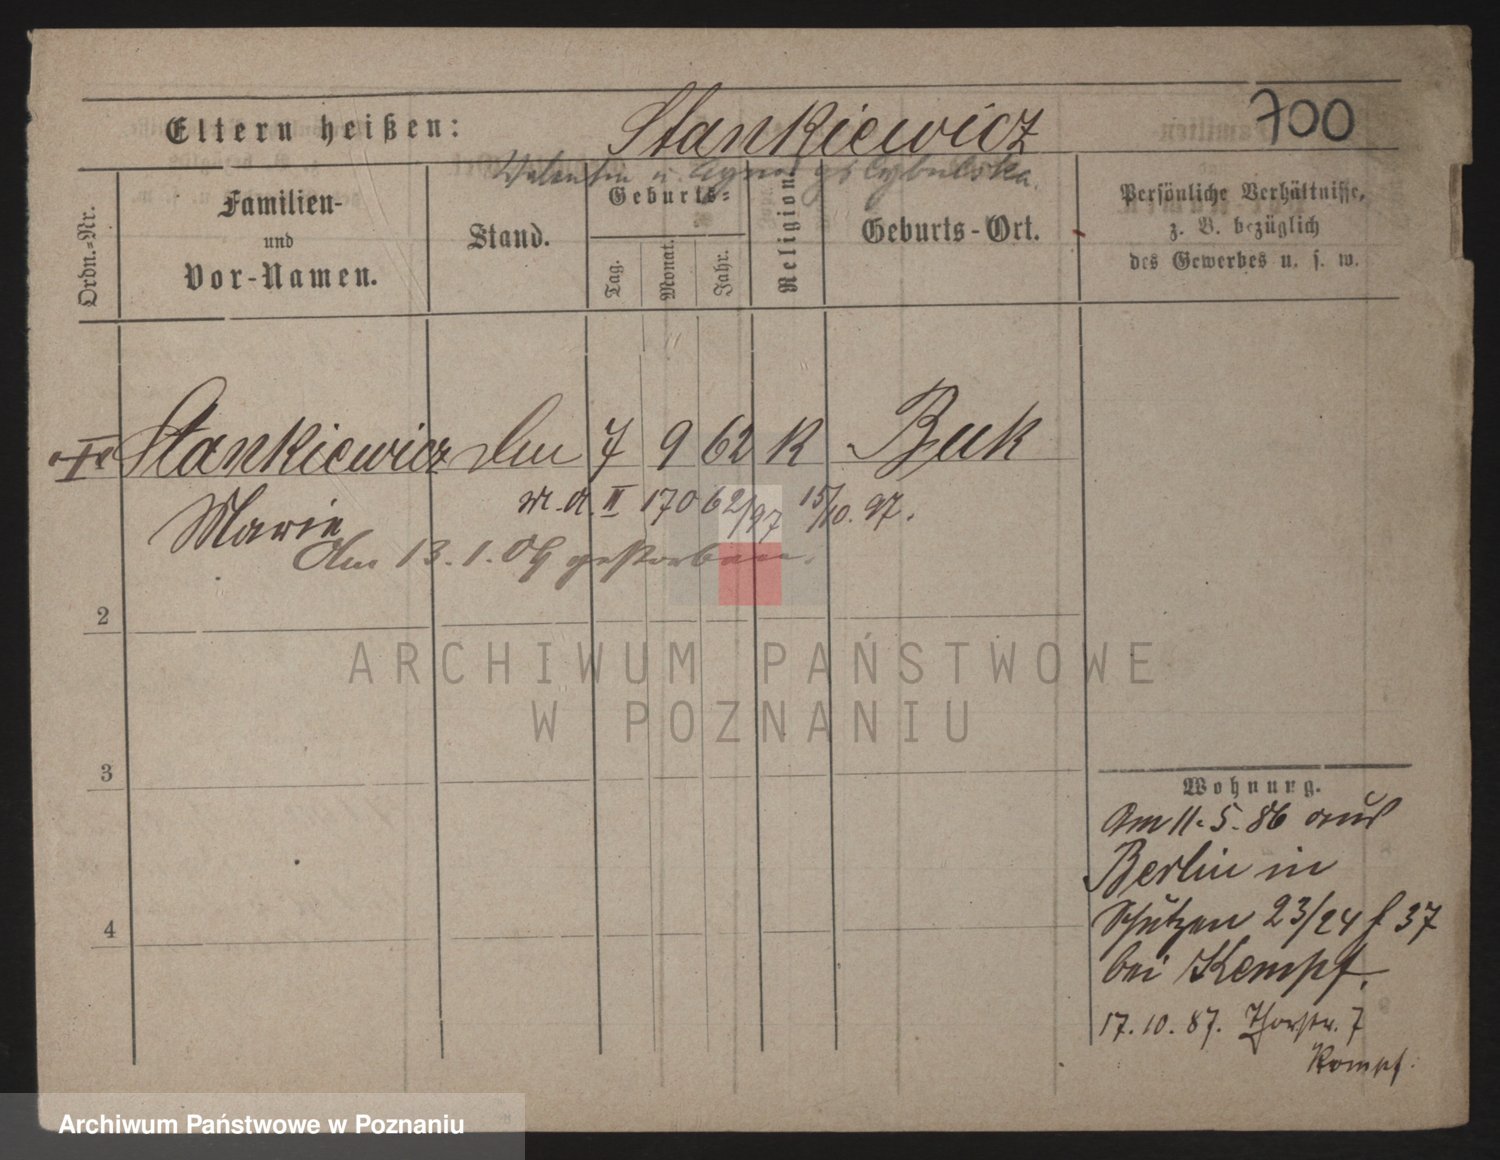 Eltern heißen: Stankiewicz 700
Valentin u.
Ordn.-Nr.
Familien-
und
Vor-Namen.
Stand.
Geburts-
Tag.
Monat.
Jahr.
Religion.
Geburts-Ort.
Persönliche Verhältnisse,
z. B. bezüglich
des Gewerbes u. s. w.
Stankiewicz 7 9 62 K Buk
Marie
II 170 62/97 15/10. 97.
Am 13. 1. 09 gestorben.
2
3
4
Wohnung.
Am 11. 5. 86 aus
Berlin in
Schützen 23/24 f 37
bei Kempf.
17. 10. 87. Thorstr. 7
Kempf.
ARCHIWUM PAŃSTWOWE
W POZNANIU
Archiwum Państwowe w Poznaniu